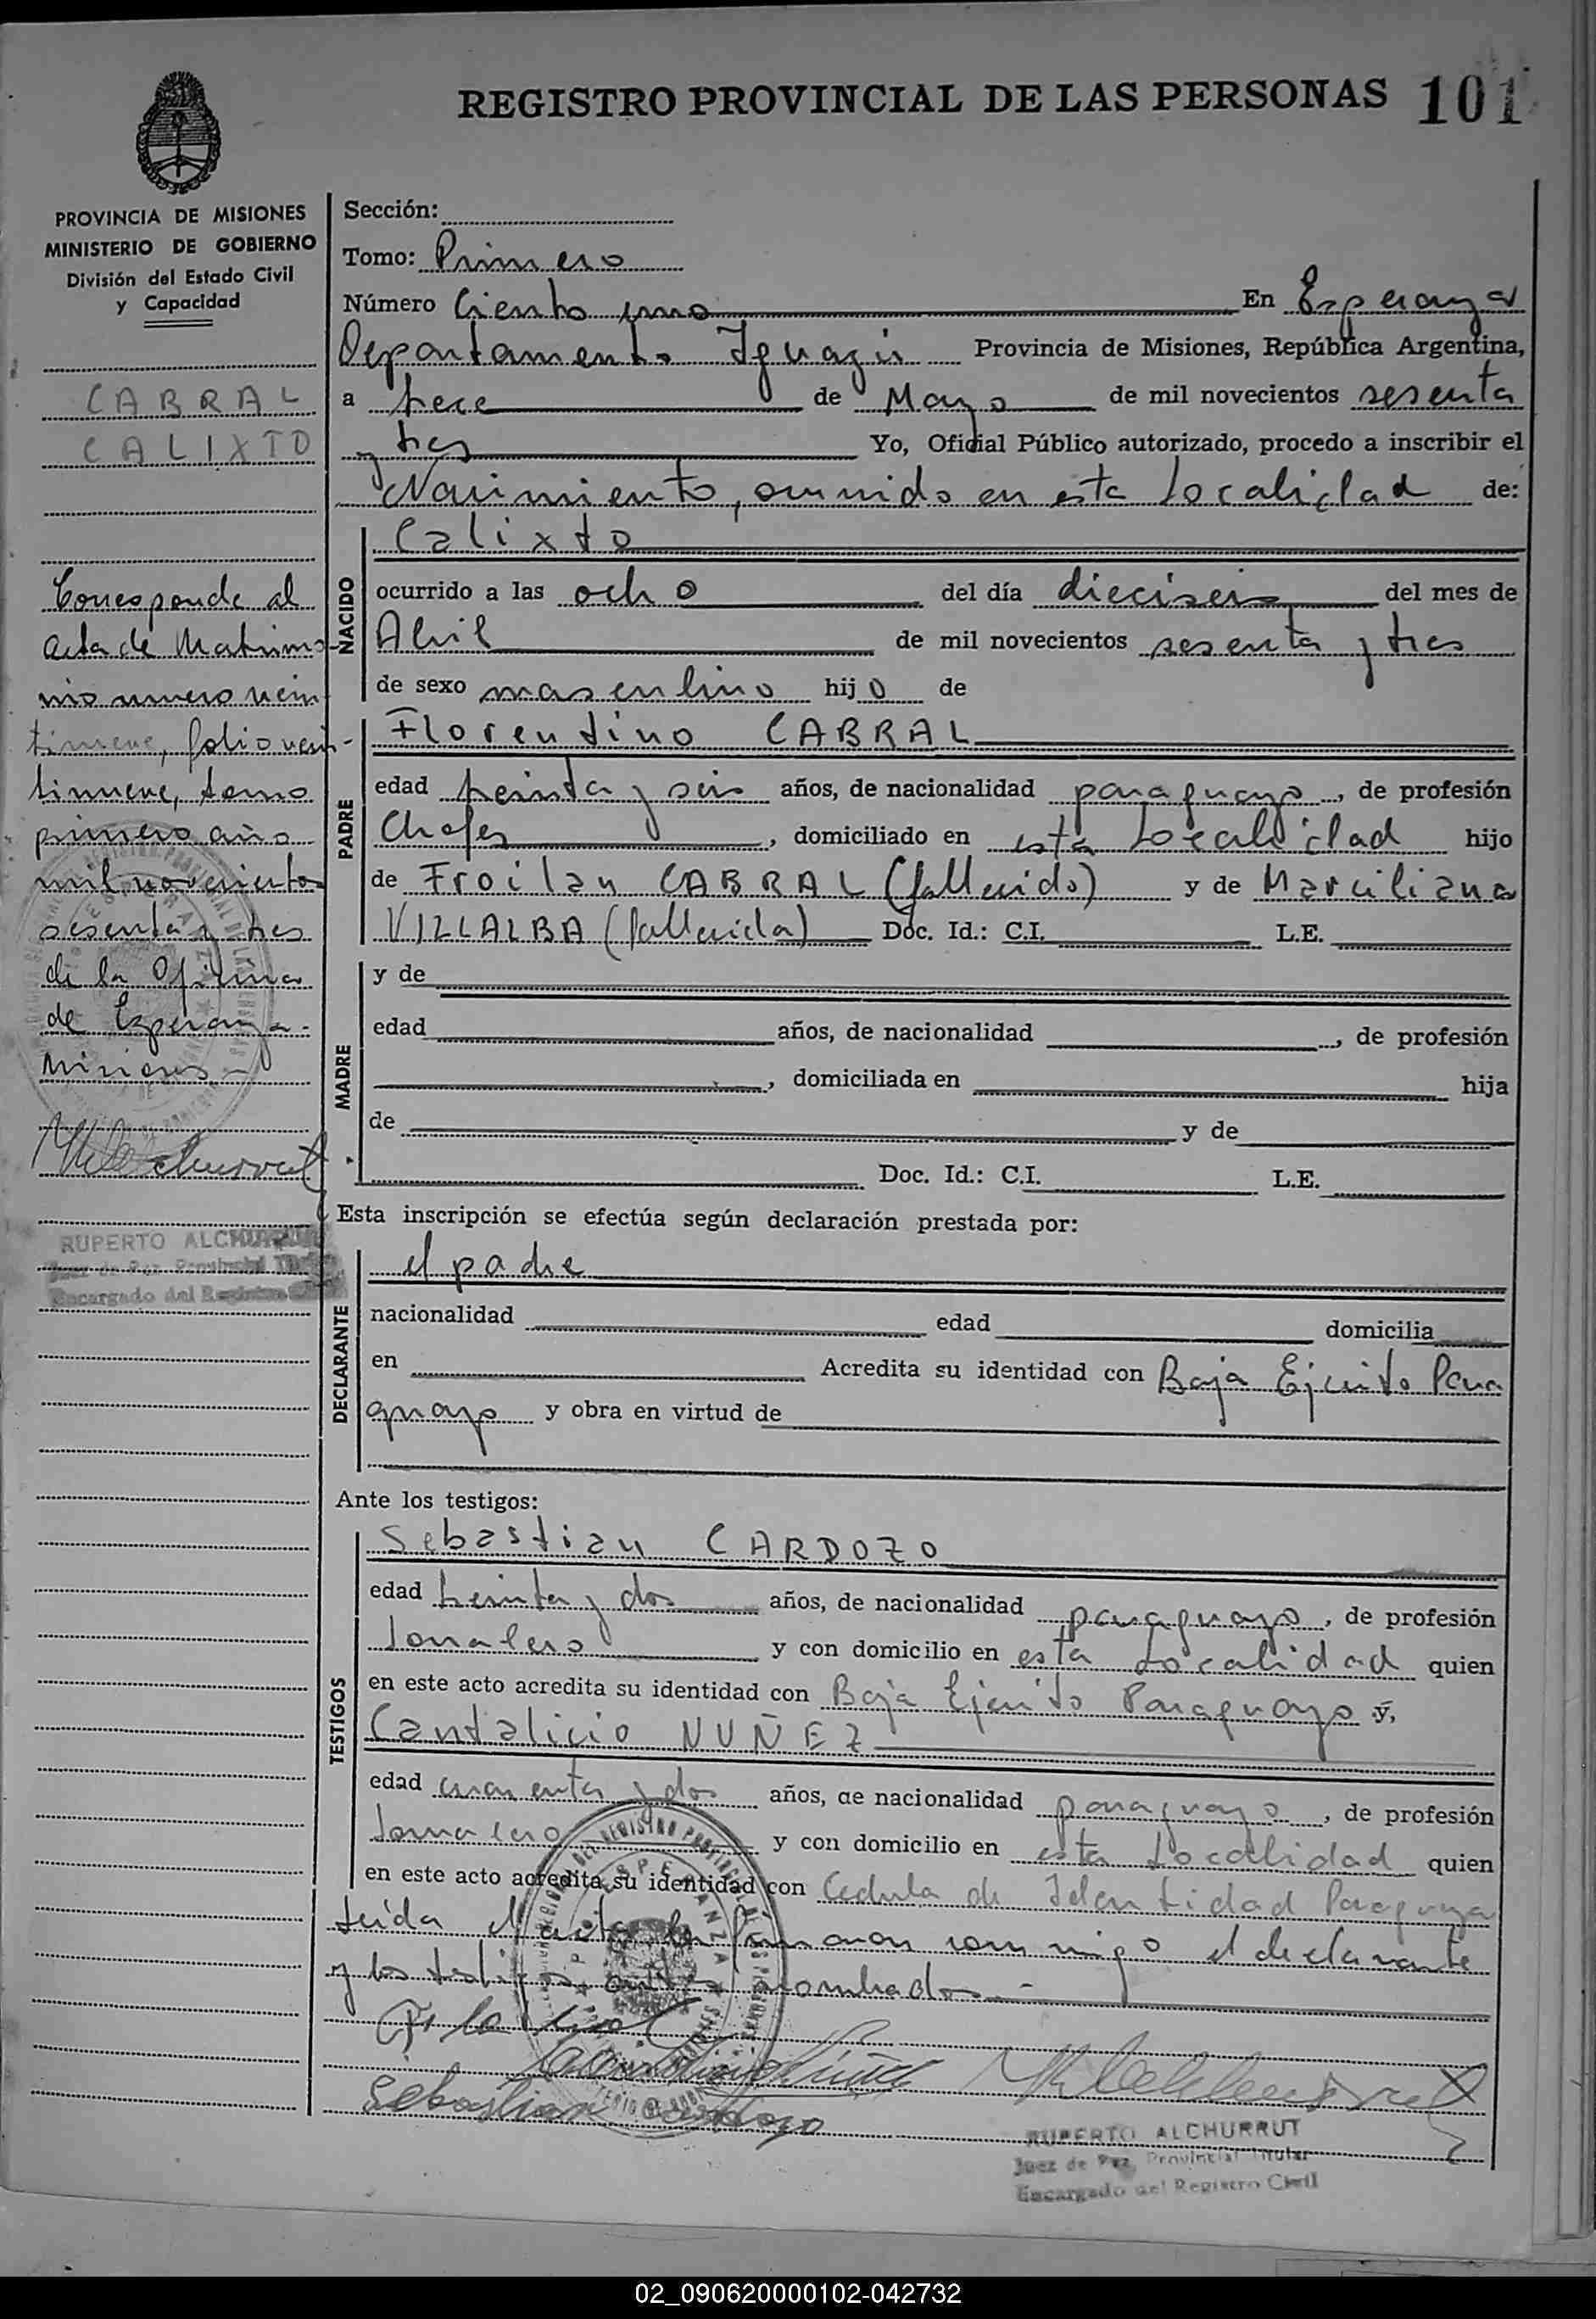 REGISTRO PROVINCIAL DE LAS PERSONAS 101
PROVINCIA DE MISIONES
MINISTERIO DE GOBIERNO
División del Estado Civil
y Capacidad
CABRAL
CALIXTO
Corresponde al
acta de Matrimo-
nio numero vein
tinueve, folio vein-
tinueve, tomo
primero año
mil novecientos
sesenta y tres
de la Oficina
de Esperanza.
Misiones.-
RUPERTO ALCHURRUT
Juez de Paz Provincial
Encargado del Registro
Sección:
Tomo: Primero
Número Ciento uno En Esperanza
Departamento Iguazú Provincia de Misiones, República Argentina,
a trece de Mayo de mil novecientos sesenta
y tres Yo, Oficial Público autorizado, procedo a inscribir el
Nacimiento, ocurrido en esta Localidad de:
NACIDO
Calixto
ocurrido a las ocho del día dieciseis del mes de
Abril de mil novecientos sesenta y tres
de sexo masculino hijo de
PADRE
Florentino CABRAL
edad treinta y seis años, de nacionalidad paraguayo, de profesión
Chofer, domiciliado en esta Localidad hijo
de Froilan CABRAL (fallecido) y de Marciliana
VILLALBA (fallecida) Doc. Id.: C.I. L.E.
MADRE
y de
edad años, de nacionalidad , de profesión
, domiciliada en hija
de y de
Doc. Id.: C.I. L.E.
Esta inscripción se efectúa según declaración prestada por:
DECLARANTE
el padre
nacionalidad edad domicilia
en Acredita su identidad con Baja Ejercito Para
guayo y obra en virtud de
Ante los testigos:
TESTIGOS
Sebastian CARDOZO
edad treinta y dos años, de nacionalidad paraguayo, de profesión
Jornalero y con domicilio en esta Localidad quien
en este acto acredita su identidad con Baja Ejercito Paraguayo y,
Cantalicio NUÑEZ
edad cuarenta y dos años, de nacionalidad paraguayo, de profesión
Jornalero y con domicilio en esta Localidad quien
en este acto acredita su identidad con Cedula de Identidad Paraguaya
Leida el acta la firmaron conmigo el declarante
y los testigos antes nombrados.-
Sebastian Cardozo
RUPERTO ALCHURRUT
Juez de Paz Provincial Titular
Encargado del Registro Civil
02_090620000102-042732